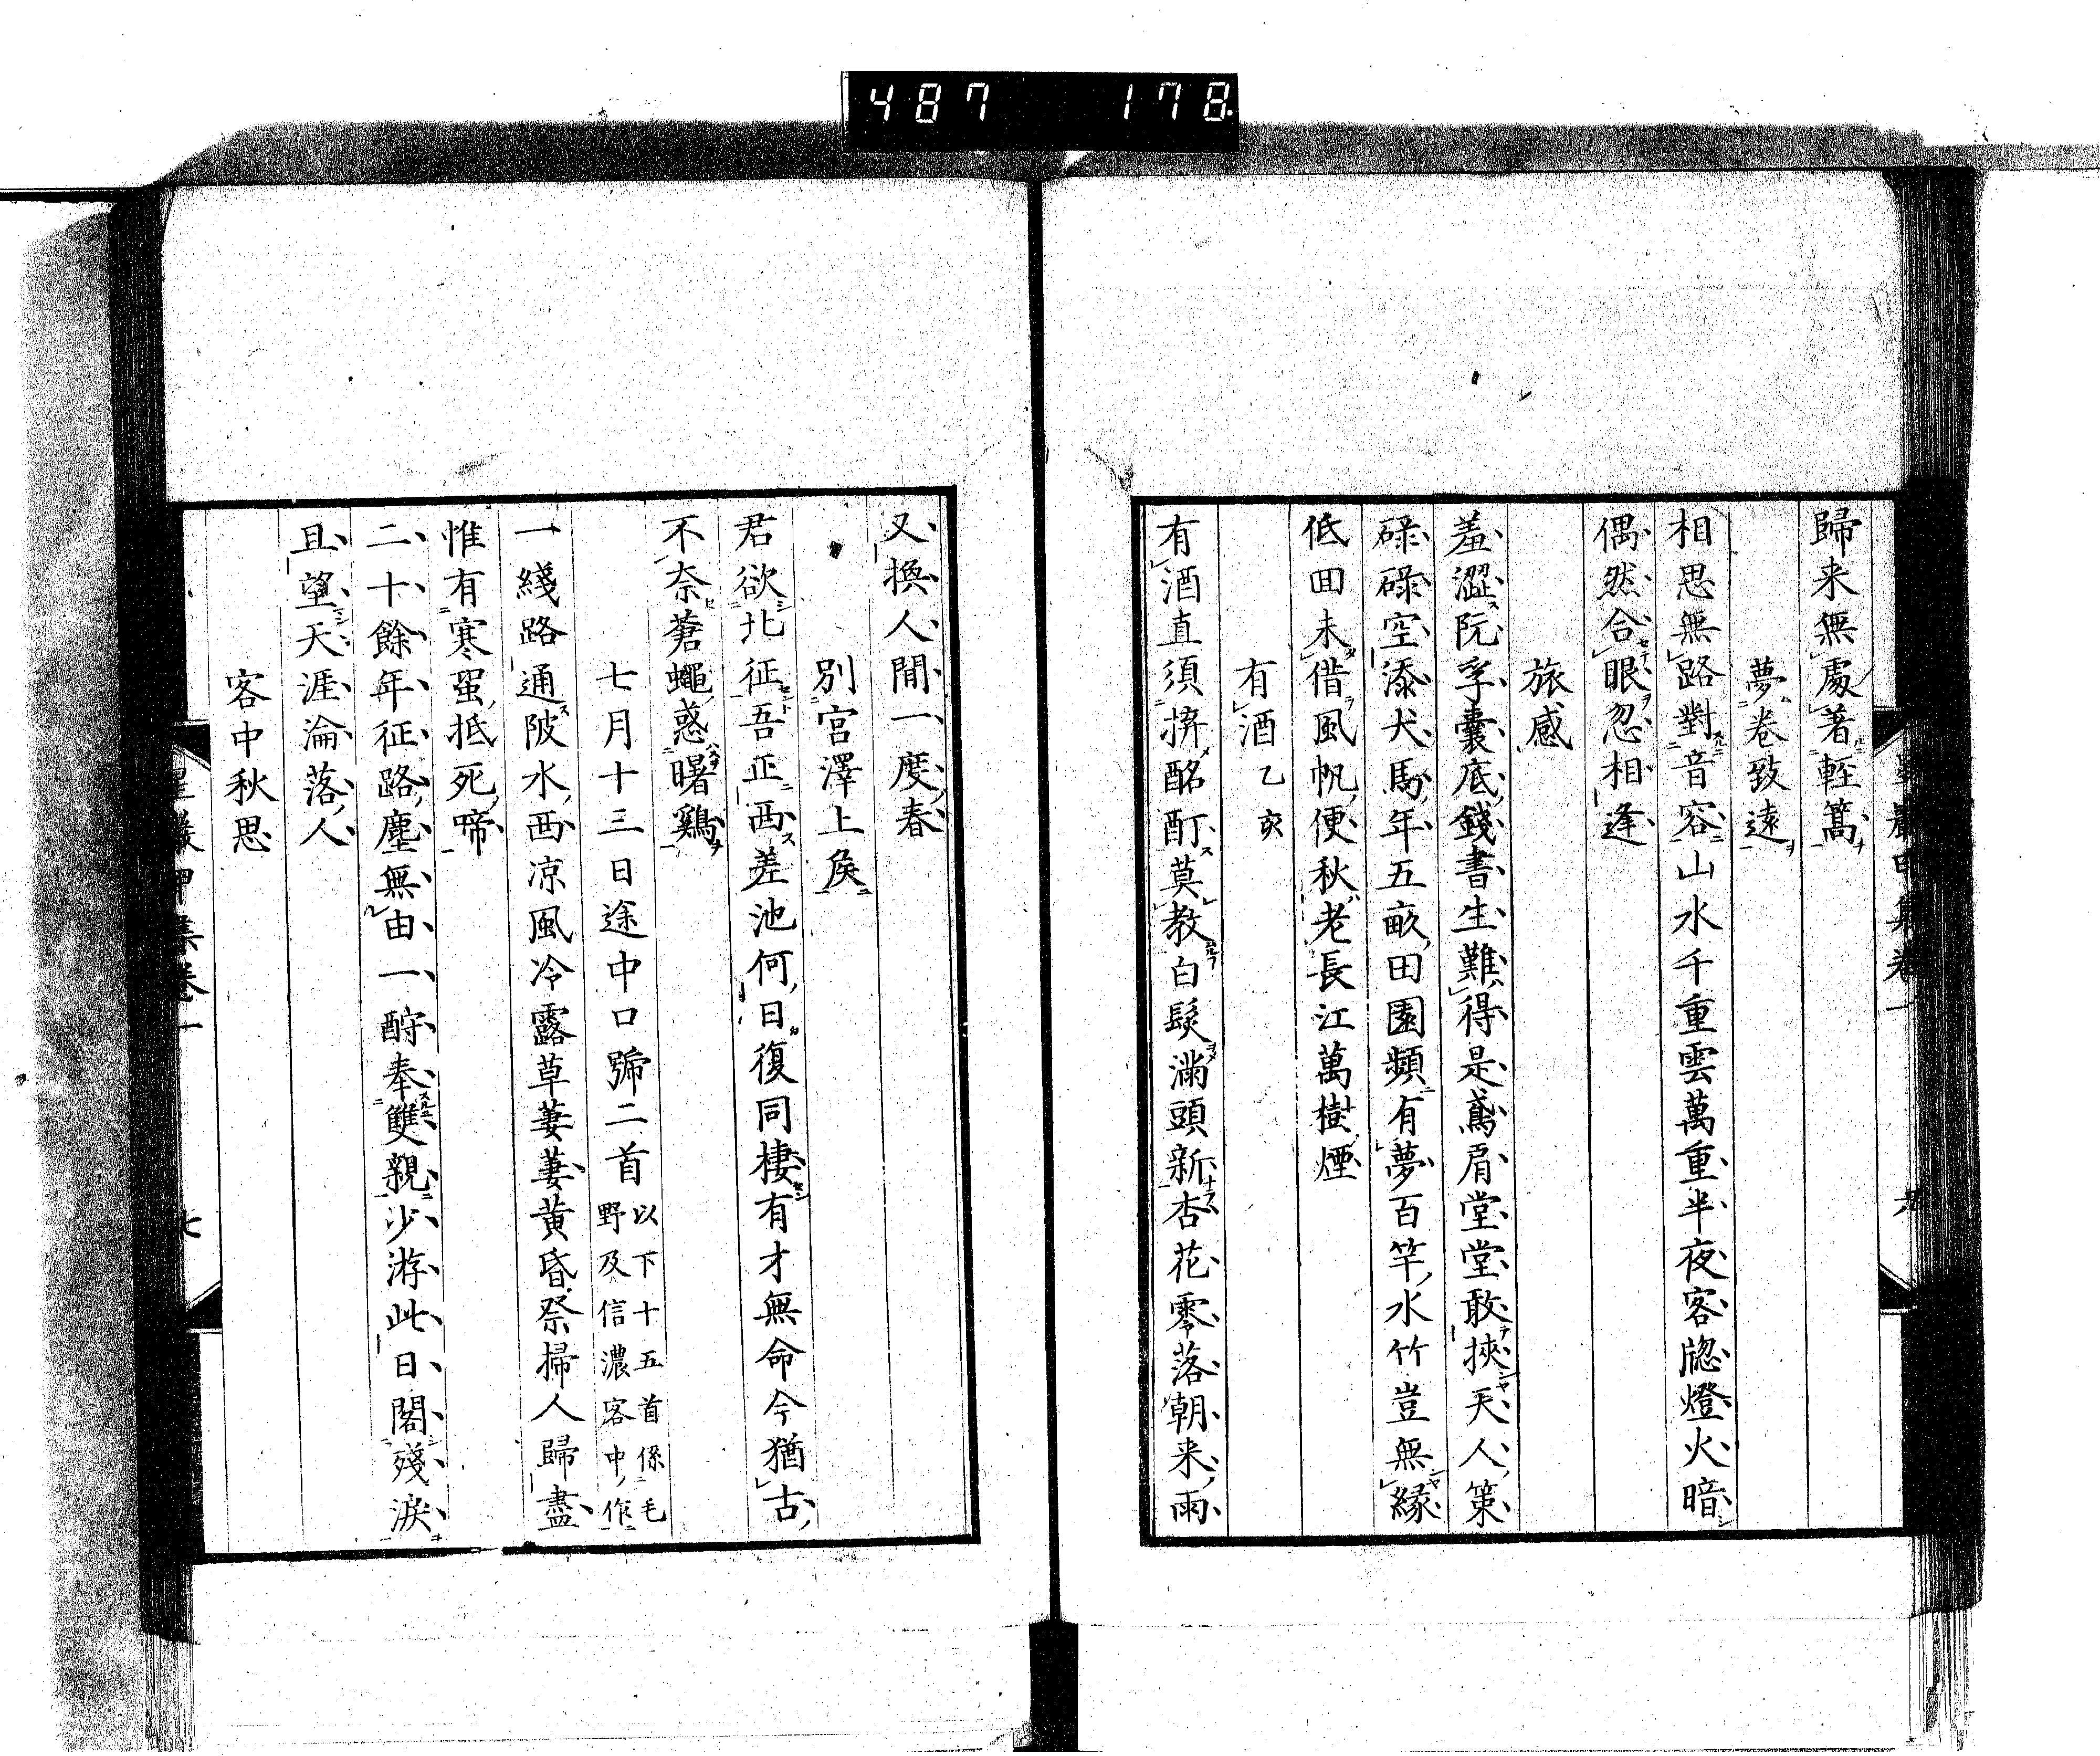 487 178
歸来無處著輕篙
夢卷致遠
相思無路對音容山水千重雲萬重半夜客牕燈火暗
偶然合眼忽相逢
旅感
羞澀阮孚囊底錢書生難得是鳶肩堂堂敢挾天人策
碌碌空添犬馬年五畝田園頻有夢百竿水竹豈無緣
低回未借風帆便秋老長江萬樹煙
有酒乙亥
有酒直須拚酩酊莫教白髮滿頭新杏花零落朝来雨
又換人間一度春
別宮澤上侯
君欲北征吾正西差池何日復同棲有才無命今猶古
不奈蒼蠅惑曙鷄
七月十三日途中口號二首以下十五首係毛
野及信濃客中作
一綫路通陂水西凉風冷露草萋萋黃昏祭掃人歸盡
惟有寒蛩抵死啼
二十餘年征路塵無由一酹奉雙親少游此日閣殘淚
且望天涯淪落人
客中秋思